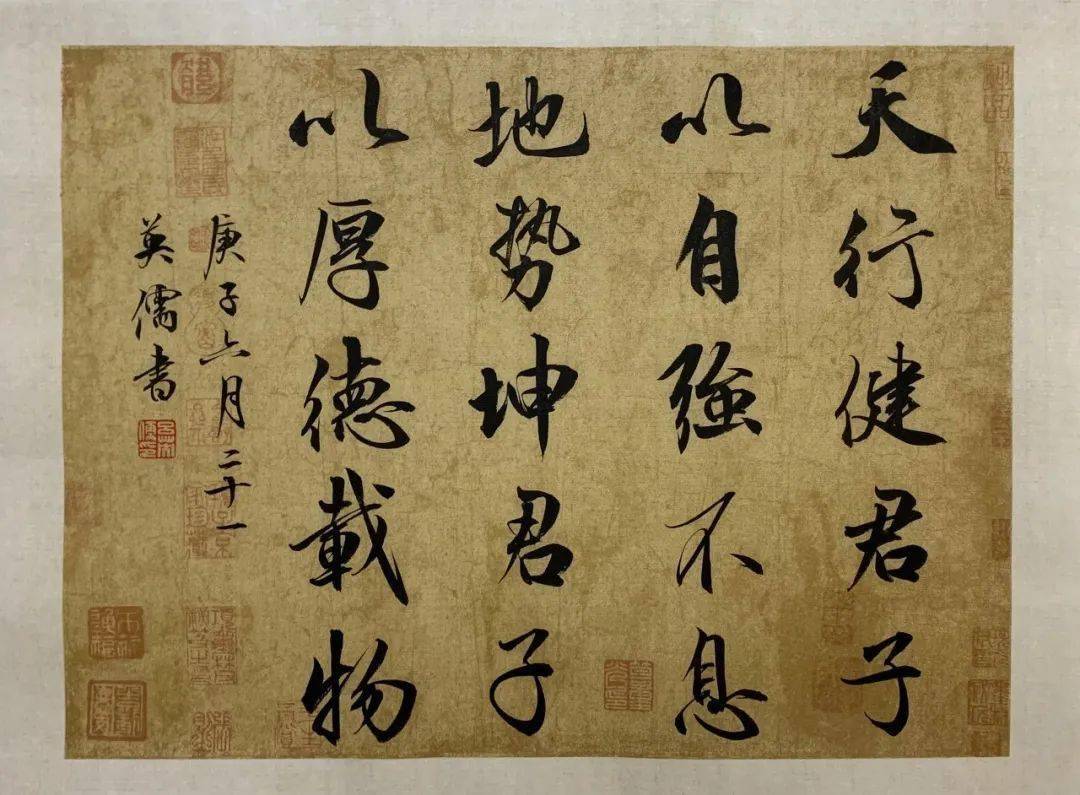 天行健君子
以自强不息
地势坤君子
以厚德載物
庚子六月二十一
英儒書